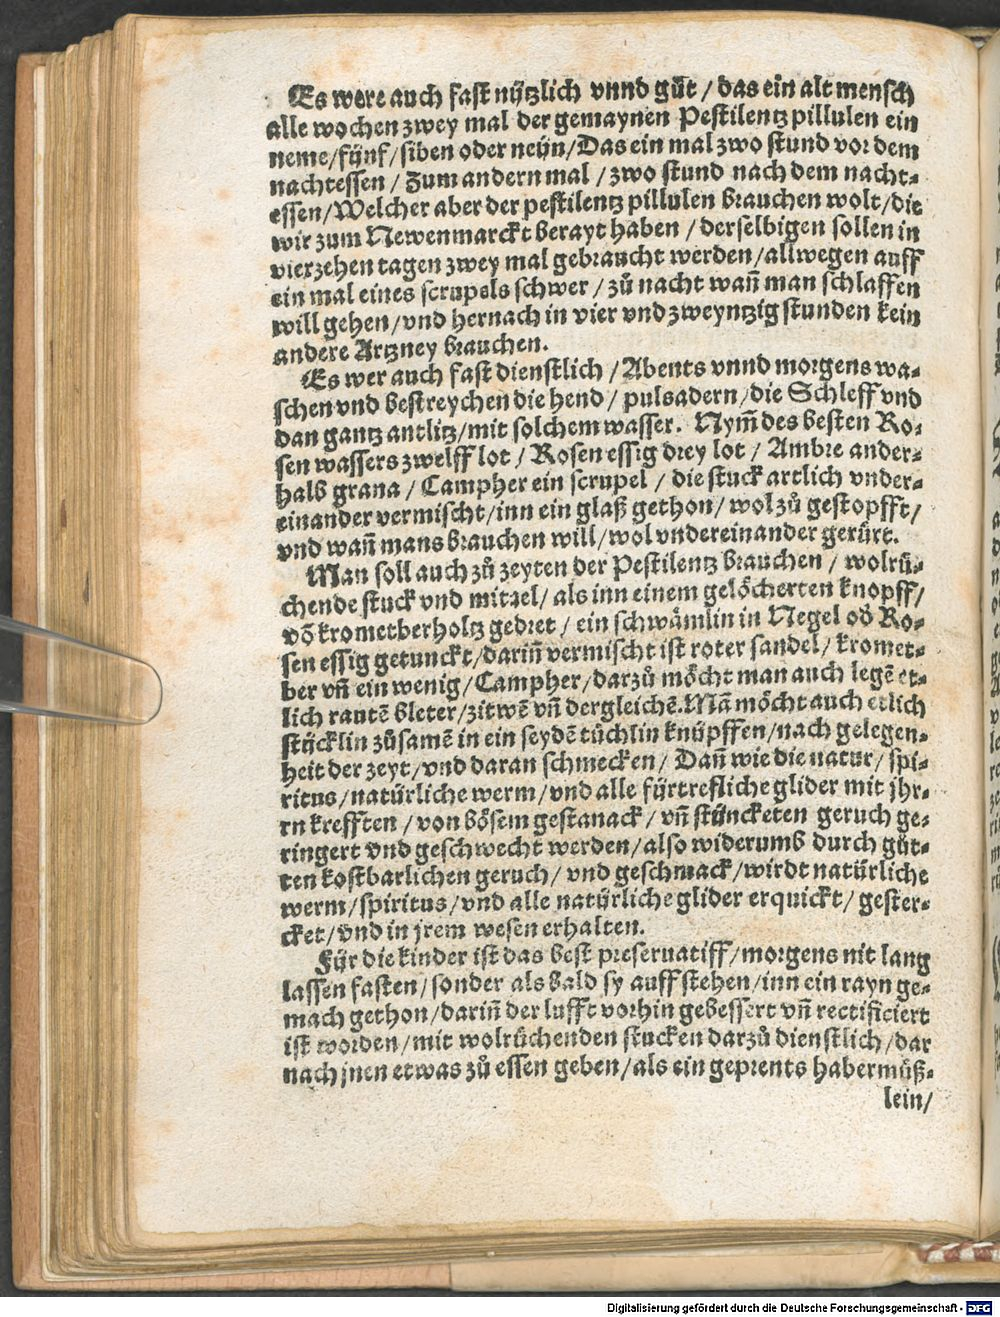 Es were auch fast nützlich vnnd gůt / das ein alt mensch
alle wochen zwey mal der gemaynen Pestilentz pillulen ein
neme / fünf / siben oder neün / Das ein mal zwo stund vor dem
nachtessen / Zum andern mal / zwo stund nach dem nacht⸗
essen / Welcher aber der pestilentz pillulen brauchen wolt / die
wir zum Newenmarckt berayt haben / derselbigen sollen in
vierzehen tagen zwey mal gebraucht werden / allwegen auff
ein mal eines scrupels schwer / zů nacht wañ man schlaffen
will gehen / vnd hernach in vier vnd zweyntzig stunden kein
andere Artzney brauchen.
Es wer auch fast dienstlich / Abents vnnd morgens wa⸗
schen vnd bestreychen die hend / pulsadern / die Schleff vnd
dan gantz antlitz / mit solchem wasser. Nym̃ des besten Ro⸗
sen wassers zwelff lot / Rosen essig drey lot / Ambre ander⸗
halb grana / Campher ein scrupel / die stuck artlich vnder⸗
einander vermischt / inn ein glaß gethon / wol zů gestopfft /
vnd wañ mans brauchen will / wol vndereinander gerürt.
Man soll auch zů zeyten der Pestilentz brauchen / wolrü⸗
chende stuck vnd mittel / als inn einem gelöcherten knopff /
võ krometberholtz gedret / ein schwämlin in Negel oď Ro⸗
sen essig getunckt / dariñ vermischt ist roter sandel / kromet⸗
ber vñ ein wenig / Campher / darzů möcht man auch legẽ et⸗
lich rautẽ bleter / zitwẽ vñ dergleichẽ. Mã möcht auch etlich
stücklin zůsamẽ in ein seydẽ tüchlin knüpffen / nach gelegen⸗
heit der zeyt / vnd daran schmecken / Dañ wie die natur / spi⸗
ritus / natürliche werm / vnd alle fürtrefliche glider mit jhr⸗
rn krefften / von bösem gestanack / vñ stüncketen geruch ge⸗
ringert vnd geschwecht werden / also widerumb durch gůt⸗
ten kostbarlichen geruch / vnd geschmack / wirdt natürliche
werm / spiritus / vnd alle natürliche glider erquickt / gester⸗
cket / vnd in jrem wesen erhalten.
Für die kinder ist das best preseruatiff / morgens nit lang
lassen fasten / sonder als bald sy auff stehen / inn ein rayn ge⸗
mach gethon / dariñ der lufft vorhin gebessert vñ rectificiert
ist worden / mit wolrüchenden stucken darzů dienstlich / dar
nach jnen etwas zů essen geben / als ein geprents habermůß⸗
lein /
Digitalisierung gefördert durch die Deutsche Forschungsgemeinschaft - DFG